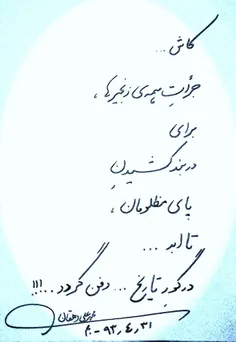 کاش ...
جرأتِ همه‌ی زنجیرها ،
برای
در بند کشیدنِ
پای مظلومان ،
تا ابد ...
در گورِ تاریخ ... دفن گردد ...!!!
۹۲,۴,۳۱